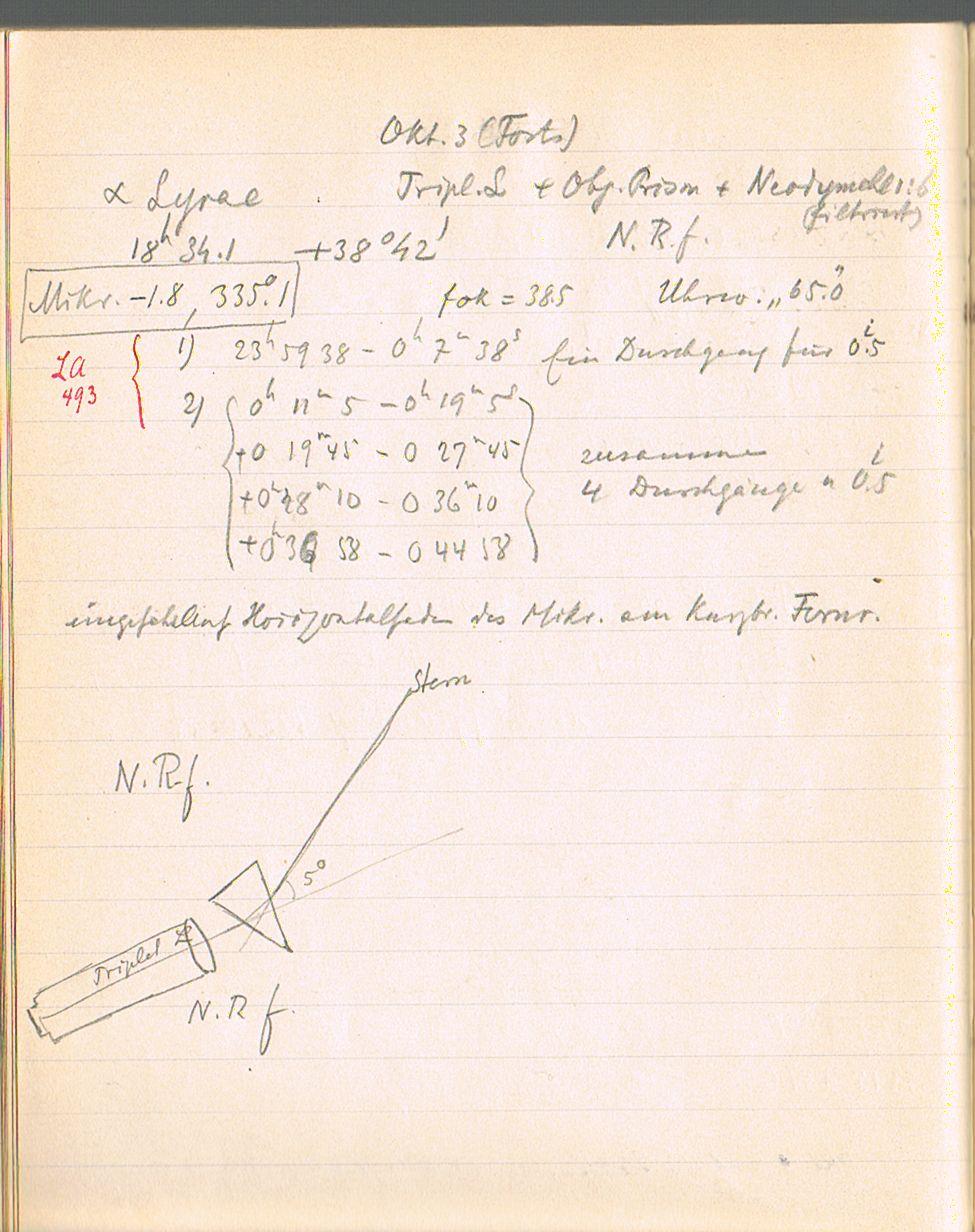 Okt. 3 (Forts)
α Lyrae . Tripl. L + Obj. Prism + Neodym
(Filter
18ʰ 34.1 +38°42' N. R. f.
Mikr. -1.8, 335°.1 fok = 38.5 Uhr 65.0"
LA
493
1) 23ʰ 59 38 - 0ʰ 7ᵐ 38ˢ Ein Durchgang für 0.5
2) 0ʰ 11ᵐ 5 - 0ʰ 19ᵐ 5ˢ
+0 19ᵐ 45 - 0 27ᵐ 45 zusammen
+0ʰ 28ᵐ 10 - 0 36ᵐ 10 4 Durchgänge 0.5
+0ʰ 36 58 - 0 44 58
eingestellt auf Horizontalfaden des Mikr. am Kurzbr. Fernr.
Stern
N. R. f.
5°
Triplet L
N. R. f.